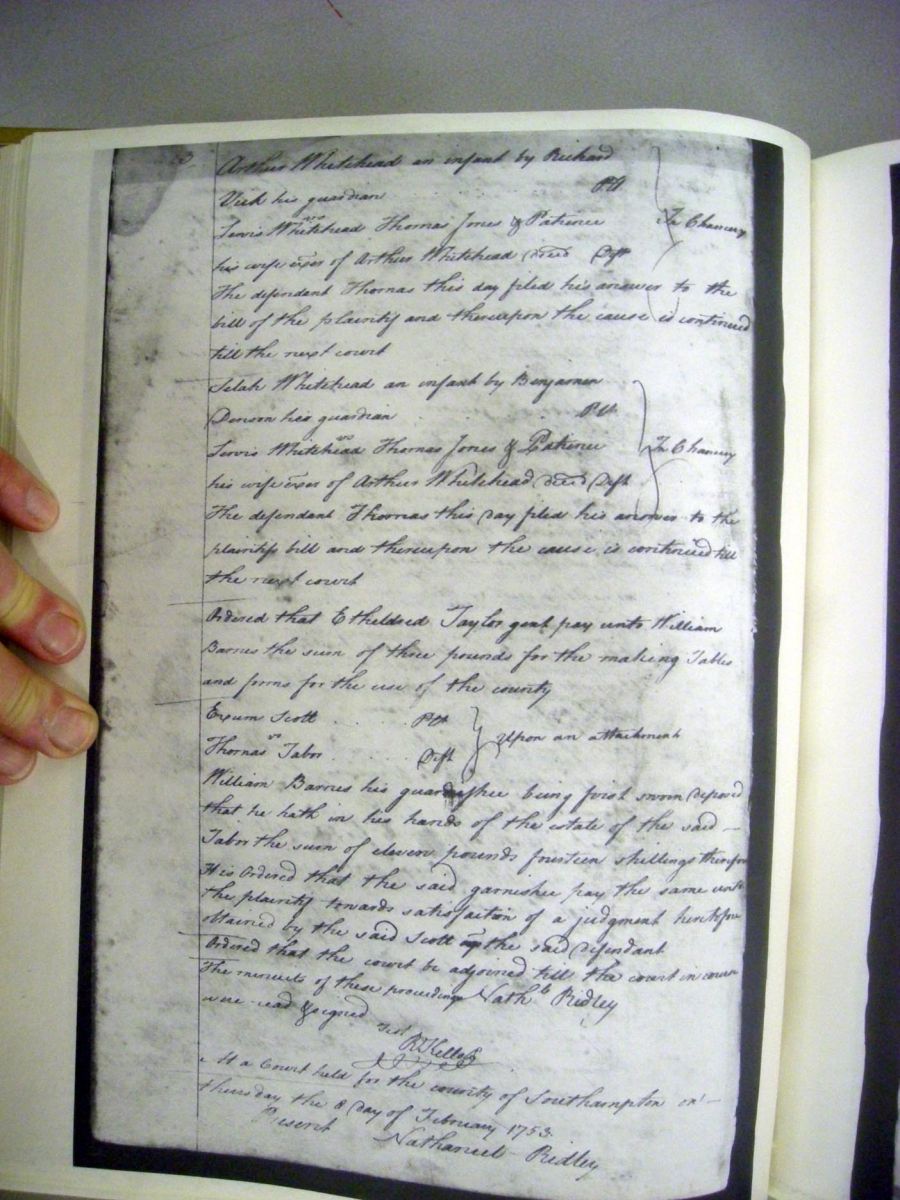 Arthur Whitehead an infant by Richard
Vick his guardian Plt
vs
Lewis Whitehead Thomas Jones & Patience In Chancery
his wife exrs of Arthur Whitehead decd Deft
The defendant Thomas this day filed his answer to the
bill of the plaintif and thereupon the cause is continued
till the next court
Selah Whitehead an infant by Benjamin
Denson his guardian Plt
vs
Lewis Whitehead Thomas Jones & Patience In Chancery
his wife exrs of Arthur Whitehead decd Deft
The defendant Thomas this day filed his answer to the
plaintifs bill and thereupon the cause is continued till
the next court
Ordered that Etheldred Taylor gent pay unto William
Barnes the sum of three pounds for the making Tables
and forms for the use of the county
Exum Scott Plt
vs Upon an attachment
Thomas Tabor Deft
William Barnes his guarnishee being first sworn deposed
that he hath in his hands of the estate of the said
Tabor the sum of eleven pounds fourteen shillings therefore
It is Ordered that the said garneshee pay the same unto
the plaintif towards satisfaction of a judgment heretofore
obtained by the said Scott agt the said Defendant
Ordered that the court be adjoined till the court in course
The minuets of these proceedings Nathl Ridley
were read & signed
Test
R Kello
At a Court held for the county of Southampton on
thursday the 8 day of February 1753
Present Nathaniel Ridley